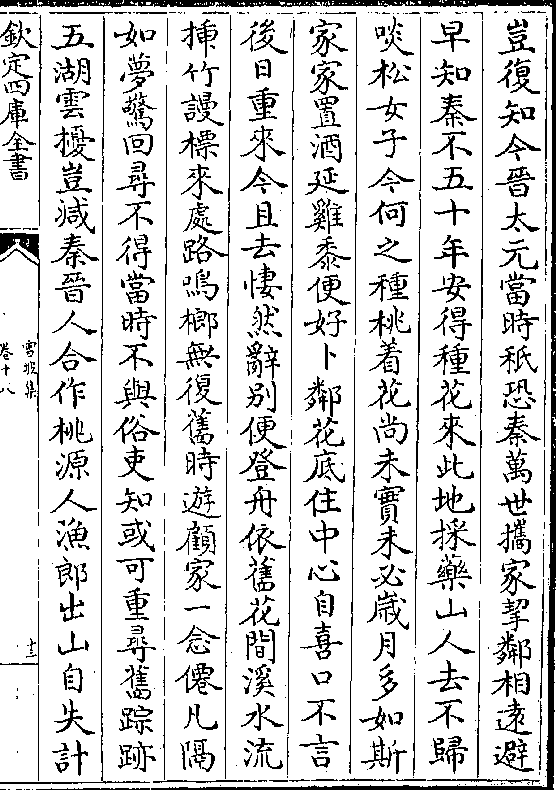 豈復知今晉太元當時秪恐秦萬世攜家挈鄰相逺避
早知秦不五十年安得種花來此地採藥山人去不歸
啖松女子今何之種桃着花尚未實未必嵗月多如斯
家家置酒延雞黍便好卜鄰花底住中心自喜口不言
後日重來今且去悽然辭别便登舟依舊花間溪水流
揷竹謾標來處路鳴榔無復舊時遊顧家一念僊凡隔
如夢驚回尋不得當時不與俗吏知或可重尋舊踪跡
五湖雲擾豈減秦晉人合作桃源人漁郎出山自失計
欽定四庫全書
雪坡集
卷十八
十三